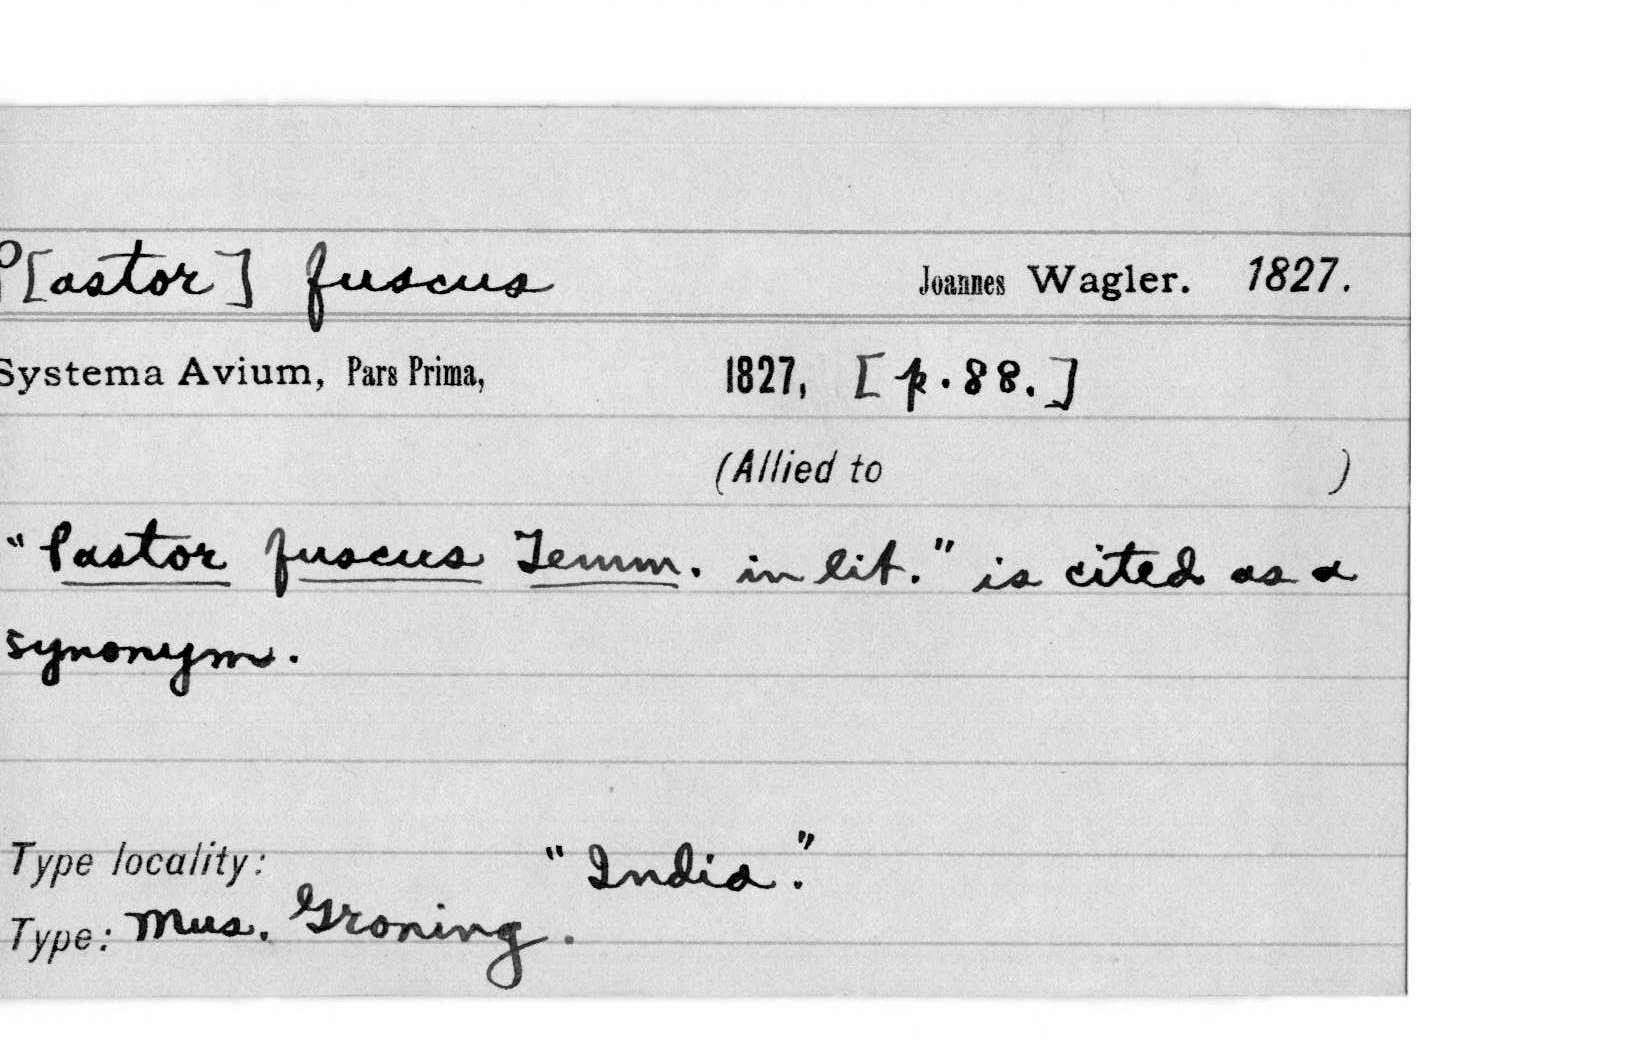 P[astor] fuscus Joannes Wagler. 1827.
Systema Avium, Pars Prima, 1827, [p.88.]
(Allied to )
"Pastor fuscus Temm. in lit." is cited as a
synonym.
Type locality: "India."
Type: Mus. Groning.